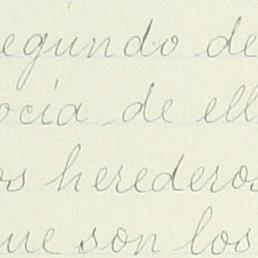 egundo de
ocía de ell
os herederos
ue son los